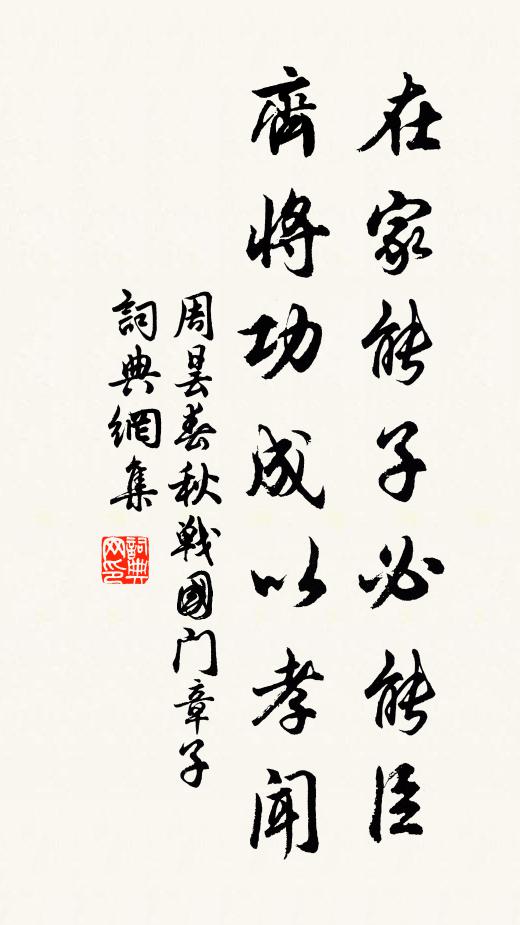 在家能子必能臣
齊將功成以孝聞
周昙春秋戰國門章子
詞典網集
詞典網印